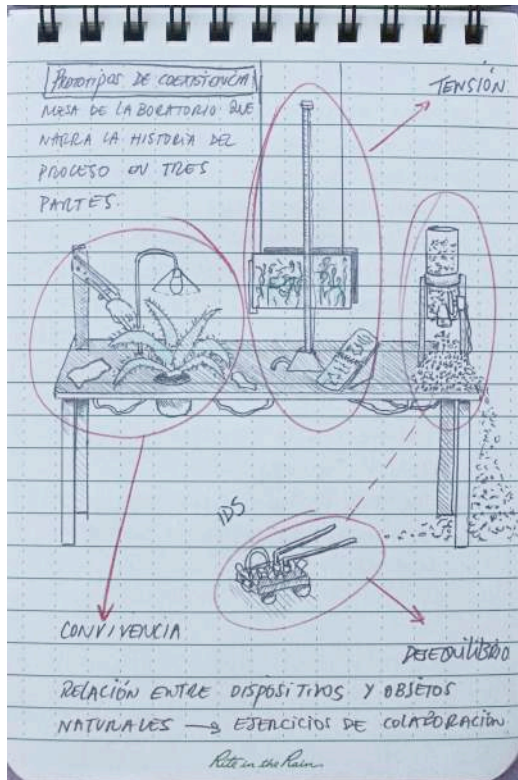 PROTOTIPOS DE COEXISTENCIA
MESA DE LABORATORIO QUE
NARRA LA HISTORIA DEL
PROCESO EN TRES
PARTES.
TENSIÓN
IDS
CONVIVENCIA
DESEQUILIBRIO
RELACIÓN ENTRE DISPOSITIVOS Y OBJETOS
NATURALES → EJERCICIOS DE COLABORACIÓN
Rite in the Rain